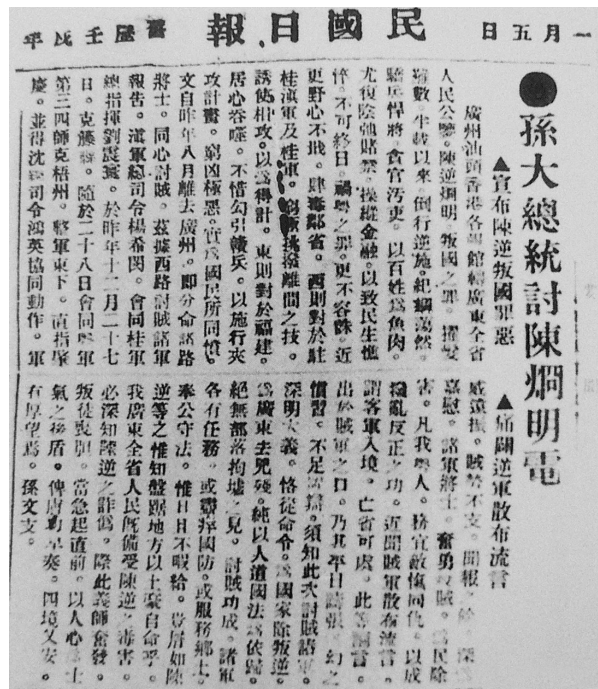 一月五日
民國日報
舊歷壬戌年
●孫大總統討陳烱明電
▲宣布陳逆叛國罪惡
▲痛闢逆軍散布流言
廣州汕頭香港各報館轉廣東全省
人民公鑒。陳逆烱明。叛國之罪。擢髮
難數。半載以來。倒行逆施。紀綱蕩然。
驕兵悍將。貪官汚吏。以百姓爲魚肉。
尤復陰弛賭禁。操縱金融。以致民生憔
悴。不可終日。禍粵之罪。更不容誅。近
更野心不戢。肆毒鄰省。西則對於駐
桂滇軍及桂軍。窮極挑撥離間之技。
誘使相攻。以爲得計。東則對於福建。
居心吞噬。不惜勾引贛兵。以施行夾
攻計畫。窮凶極惡。實爲國民所同憤。
文自昨年八月離去廣州。即分命諸路
將士。同心討賊。茲據西路討賊諸軍
報告。滇軍總司令楊希閔。會同桂軍
總指揮劉震寰。於昨年十二月二十七
日。克藤縣。隨於二十八日會同粵軍
第三四師克梧州。整軍東下。直指肇
慶。並得沈總司令鴻英協同動作。軍
威遠振。賊勢不支。聞報之餘。深爲
嘉慰。諸軍將士。奮勇殺賊。爲民除
害。凡我粵人。務宜敵愾同仇。以成
撥亂反正之功。近聞賊軍散布流言。
謂客軍入境。亡省可處。此等讕言。
出於賊軍之口。乃其平日譸張爲幻之
慣習。不足深辯。須知此次討賊諸軍。
深明大義。恪從命令。爲國家除叛逆。
爲廣東去兇殘。純以人道國法爲依歸。
絕無部落拘墟之見。討賊功成。諸軍
各有任務。或國防。或服務鄉土。
奉公守法。惟日日不暇給。豈屑如陳
逆等之惟知盤踞地方以土豪自命乎。
我廣東全省人民旣備受陳逆之毒害。
必深知陳逆之詐僞。際此義師奮發。
叛徒喪胆。當急起直前。以人心爲士
氣之後盾。俾膚功早奏。四境乂安。
有厚望焉。孫文支。